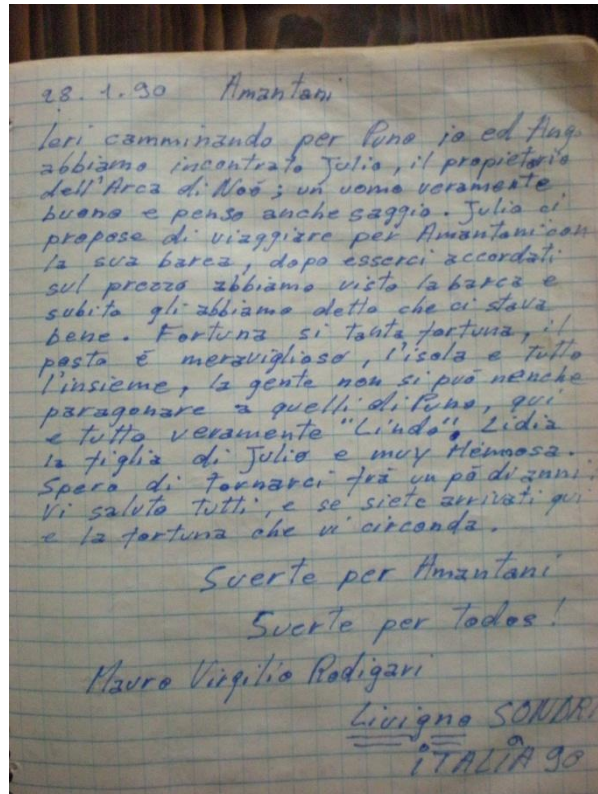 28.1.90 Amantani
Ieri camminando per Puno io ed Ang.
abbiamo incontrato Julio, il propietario
dell'Arca di Noé; un uomo veramente
buono e penso anche saggio. Julio ci
propose di viaggiare per Amantani con
la sua barca, dopo esserci accordati
sul prezzo abbiamo visto la barca e
subito gli abbiamo detto che ci stava
bene. Fortuna si tanta fortuna, il
posto é meraviglioso, l'isola e tutto
l'insieme, la gente non si può nenche
paragonare a quelli di Puno, qui
e tutto veramente "Lindo". Lidia
la figlia di Julio e muy Hermosa.
Spero di tornarci frà un pò di anni.
Vi saluto tutti, e se siete arrivati qui
e la fortuna che vi circonda.
Suerte per Amantani
Suerte per Todos!
Mauro Virgilio Rodigari
Livigno SONDRI
ITALIA 90